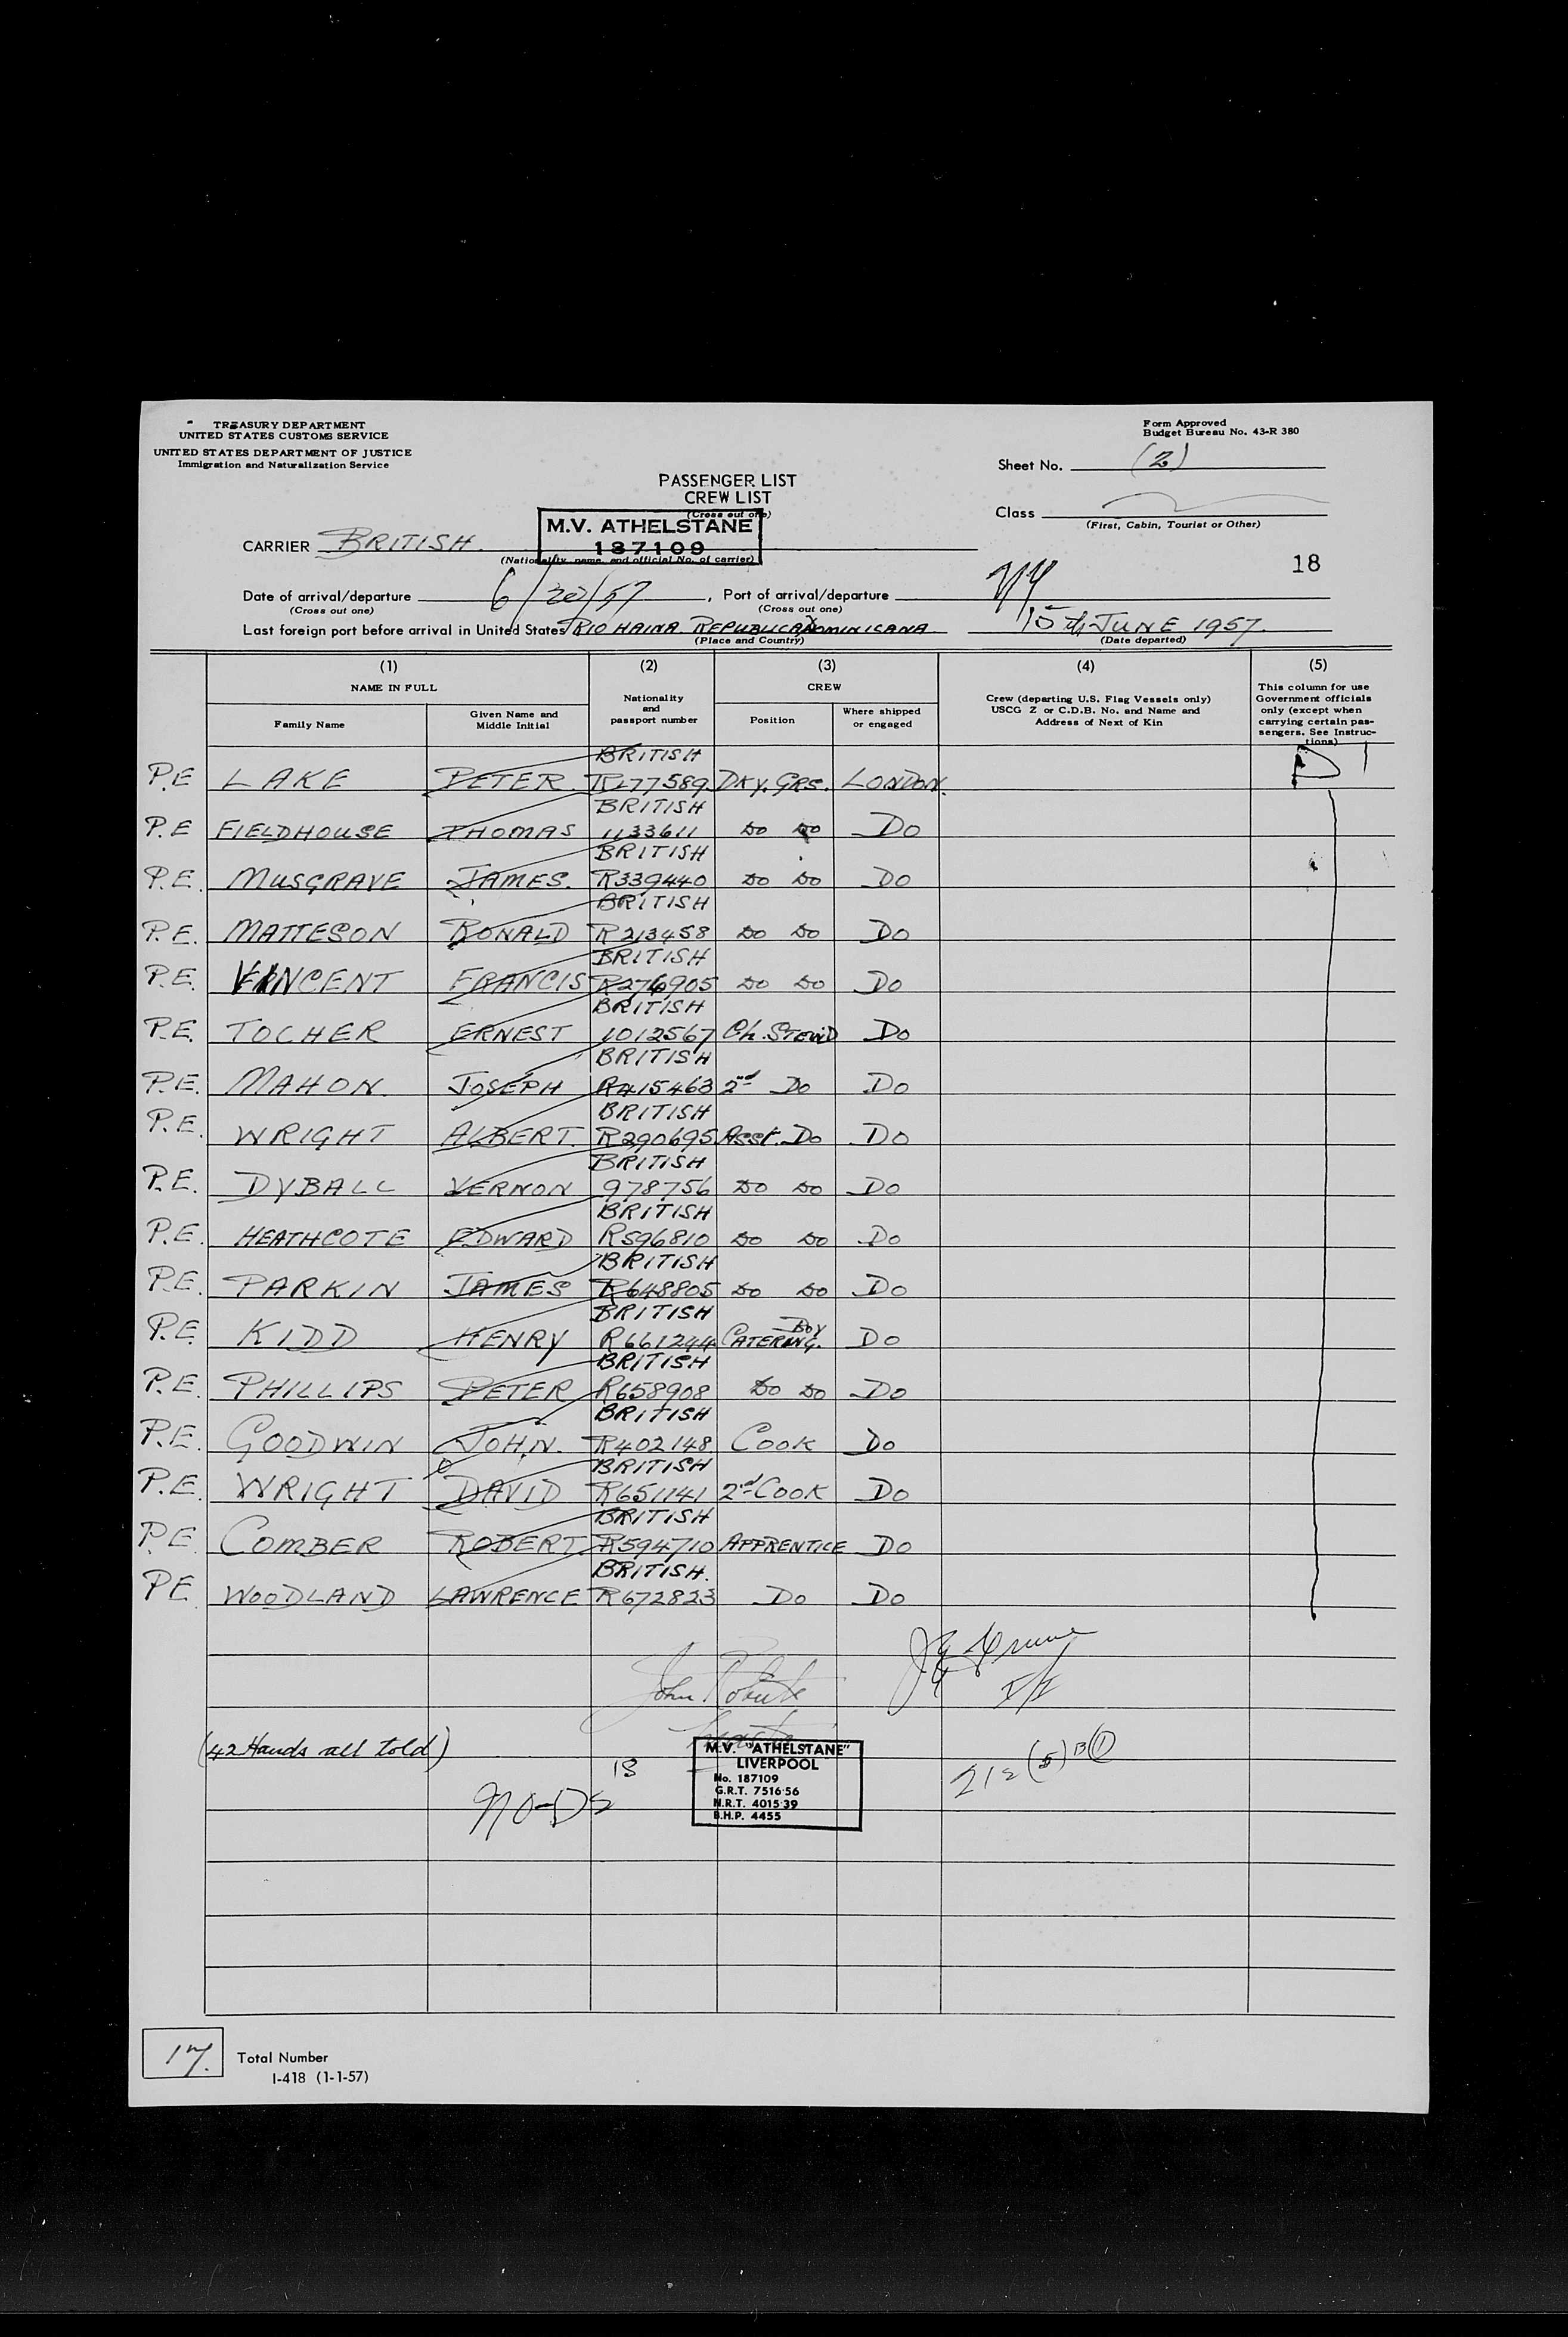 TREASURY DEPARTMENT
UNITED STATES CUSTOMS SERVICE
UNITED STATES DEPARTMENT OF JUSTICE
Immigration and Naturalization Service
Form Approved
Budget Bureau No. 43-R 380
Sheet No. (2)
PASSENGER LIST
CREW LIST
(Cross out one)
Class
(First, Cabin, Tourist or Other)
CARRIER BRITISH M.V. ATHELSTANE
187109
(Nationality, name, and official No. of carrier)
18
Date of arrival/departure 6/20/57, Port of arrival/departure NY
(Cross out one) (Cross out one)
Last foreign port before arrival in United States RIO HAINA. REPUBLICA DOMINICANA 15th JUNE 1957.
(Place and Country) (Date departed)
(1) (2) (3) (4) (5)
NAME IN FULL Nationality and passport number CREW Crew (departing U.S. Flag Vessels only) USCG Z or C.D.B. No. and Name and Address of Next of Kin This column for use Government officials only (except when carrying certain passengers. See Instructions)
Family Name Given Name and Middle Initial Position Where shipped or engaged
BRITISH
P.E LAKE PETER. R177589 Dky. GRS. LONDON.
BRITISH
P.E FIELDHOUSE THOMAS 1133611 Do Do Do
BRITISH
P.E. MUSGRAVE JAMES. R339440 Do Do Do
BRITISH
P.E. MATTESON RONALD R213458 Do Do Do
BRITISH
P.E. VINCENT FRANCIS R276905 Do Do Do
BRITISH
P.E. TOCHER ERNEST 1012567 Ch. STEW'D Do
BRITISH
P.E. MAHON. JOSEPH R415463 2nd Do Do
BRITISH
P.E. WRIGHT ALBERT. R290695 Asst. Do Do
BRITISH
P.E. DYBALL VERNON 978756 Do Do Do
BRITISH
P.E. HEATHCOTE EDWARD R596810 Do Do Do
BRITISH
P.E. PARKIN JAMES R648805 Do Do Do
BRITISH
P.E. KIDD HENRY R661244 CATERING. BOY Do
BRITISH
P.E. PHILLIPS PETER R658908 Do Do Do
BRITISH
P.E. GOODWIN JOHN. R402148 COOK Do
BRITISH
P.E. WRIGHT DAVID R651141 2nd COOK Do
BRITISH
P.E. COMBER ROBERT. R594710 APPRENTICE Do
BRITISH.
PE WOODLAND LAWRENCE R672823 Do Do
John Roberts
Master
(42 Hands all told)
M.V. "ATHELSTANE"
LIVERPOOL
No. 187109
G.R.T. 7516·56
N.R.T. 4015·39
B.H.P. 4455
18
17. Total Number
I-418 (1-1-57)